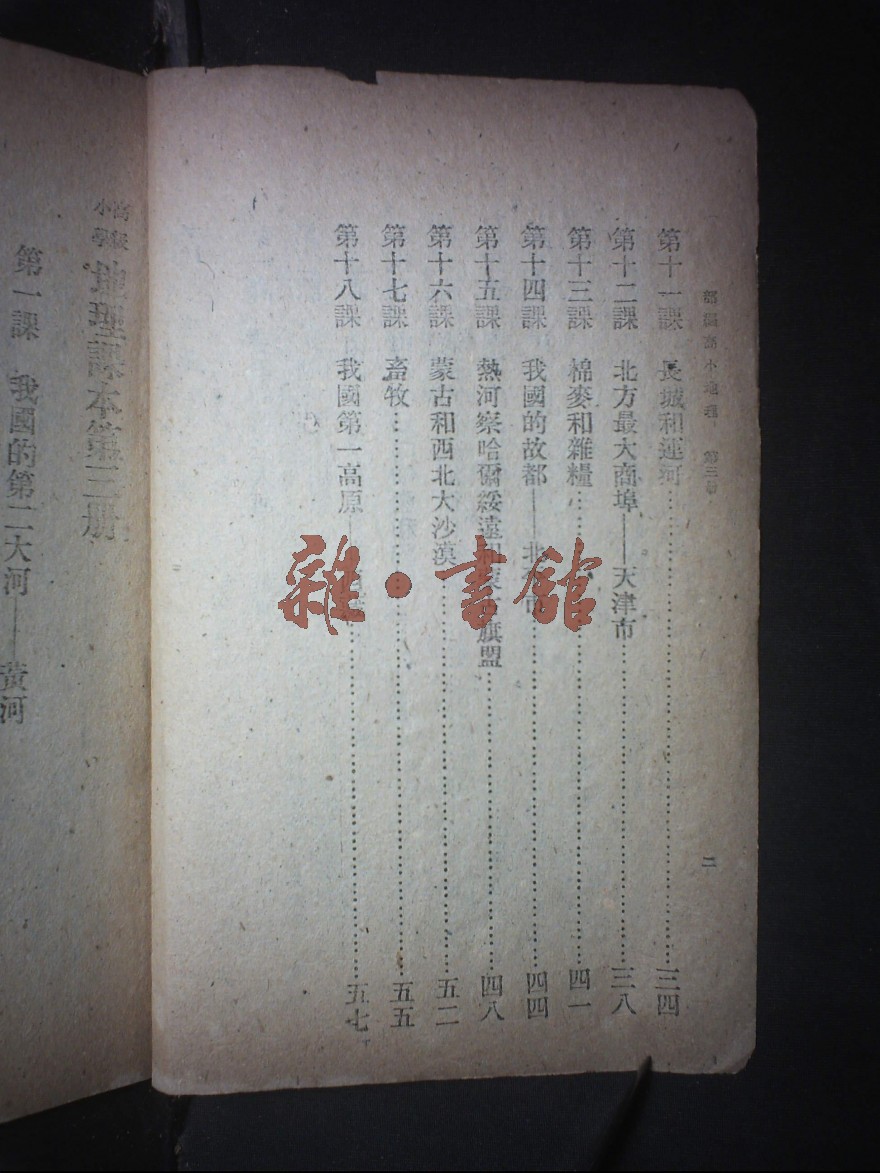 部編高小地理 第三冊
二
第十一課 長城和運河……三四
第十二課 北方最大商埠——天津市……三八
第十三課 棉麥和雜糧……四一
第十四課 我國的故都——北平市……四四
第十五課 熱河察哈爾綏遠和蒙古旗盟……四八
第十六課 蒙古和西北大沙漠……五二
第十七課 畜牧……五五
第十八課 我國第一高原——……五七
高級小學 地理課本第三册
第一課 我國的第二大河——黃河
雜·書館